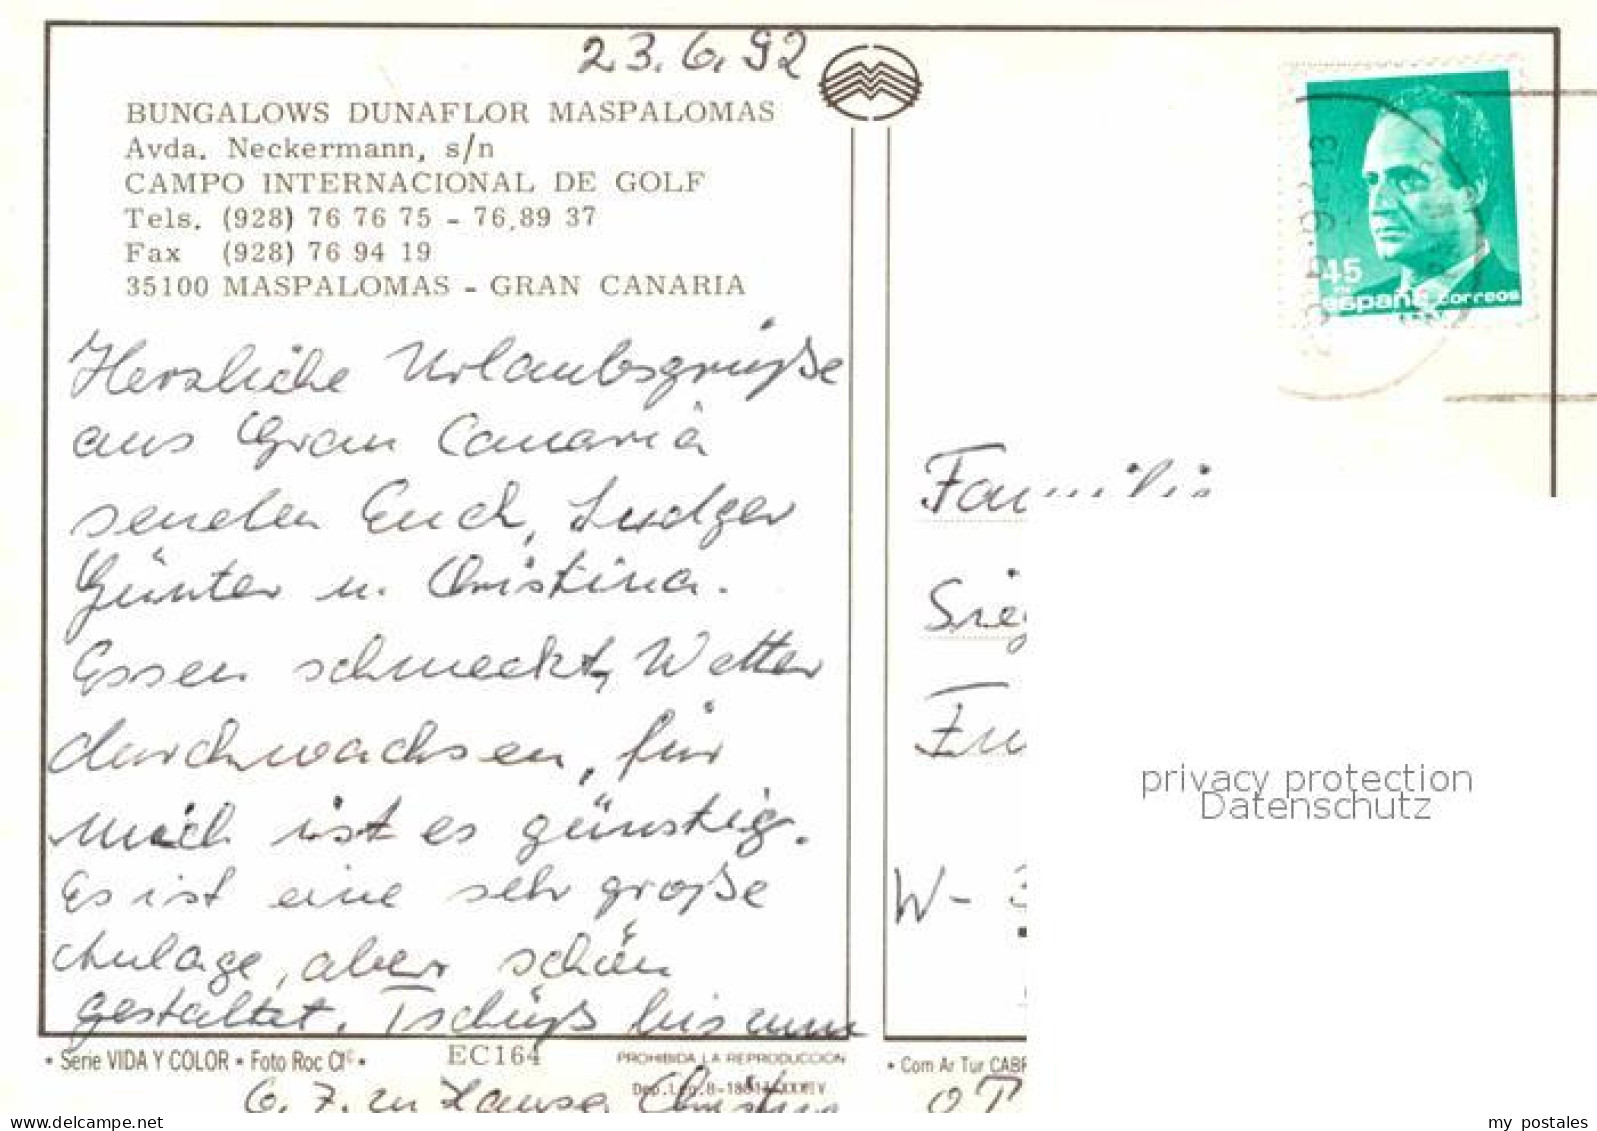 23.6.92
BUNGALOWS DUNAFLOR MASPALOMAS
Avda. Neckermann, s/n
CAMPO INTERNACIONAL DE GOLF
Tels. (928) 76 76 75 - 76.89 37
Fax (928) 76 94 19
35100 MASPALOMAS - GRAN CANARIA
Herzliche Urlaubsgrüße
aus Gran Canaria
senden Euch, Ludger
Günter u. Christina.
Essen schmeckt, Wetter
durchwachsen, für
mich ist es günstig.
Es ist eine sehr große
Anlage, aber schön
gestaltet. Tschüß bis zum
6.7. zu Hause Christina
• Serie VIDA Y COLOR • Foto Roc
EC164
PROHIBIDA LA REPRODUCCION
45
españa correos
Familie
W-
• Com Ar Tur
privacy protection
Datenschutz
www.delcampe.net
my_postales